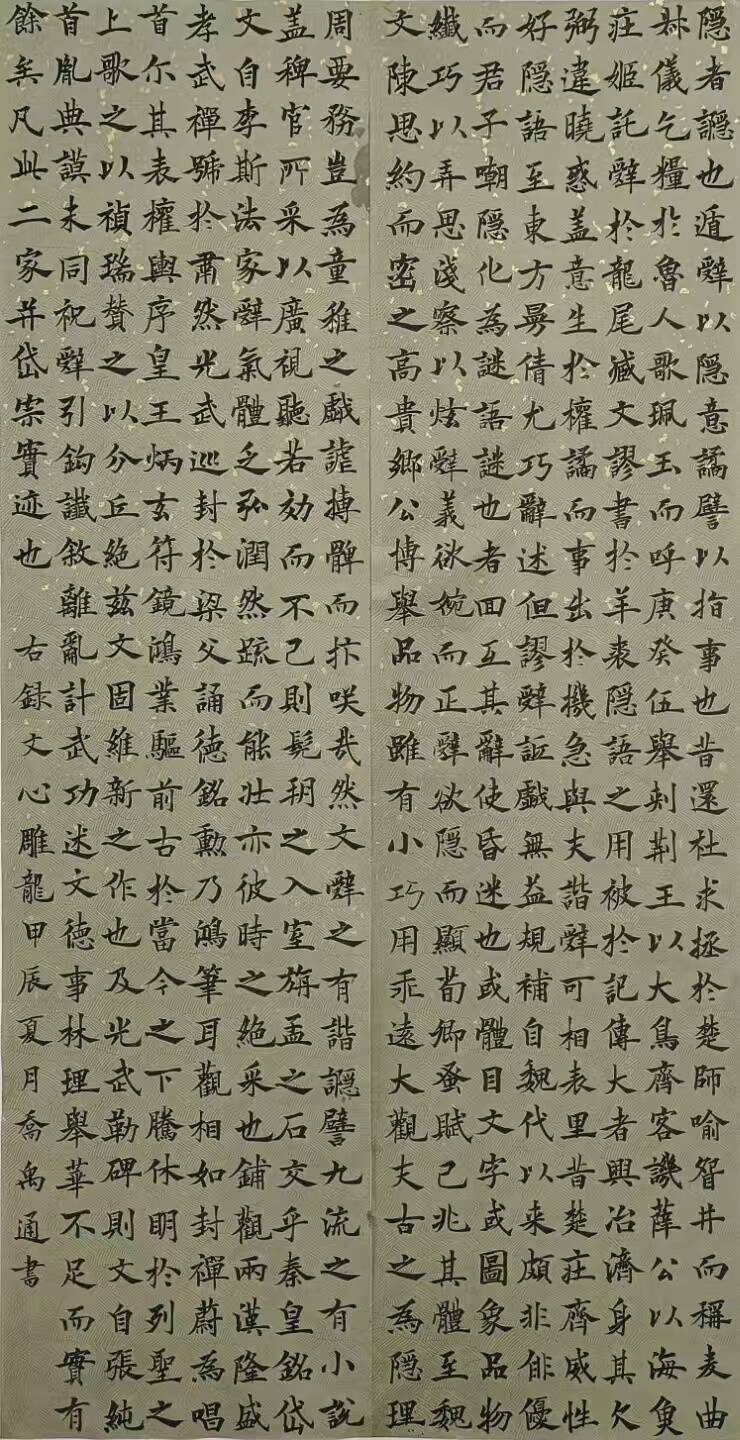 隱者讔也遁辤以隱意譎譬以指事也昔還杜求拯於楚師喻眢井而稱麦曲
叔儀乞糧於魯人歌珮玉而呼庚癸伍舉刺荊王以大鳥齊客譏薛公以海魚
莊姬託辤於龍尾臧文謬書於羊裘隱語之用被於記傳大者興治濟身其次
弼違曉惑蓋意生於權譎而事出於機急與夫諧辤可相表里昔楚莊齊威性
好隱語至東方曼倩尤巧辭述但謬辤詆戲無益規補自魏代以来頗非俳優
而君子嘲隱化為謎語謎也者回互其辭使昏迷也或體目文字或圖象品物
纖巧以弄思淺察以炫辤義欲婉而正辤欲隱而顯荀卿蚕賦已兆其體至魏
文陳思約而密之高貴鄉公博舉品物雖有小巧用乖遠大觀夫古之為隱理
周要務豈為童稚之戲謔摶髀而抃咲哉然文辤之有諧讔譬九流之有小說
蓋稗官所采以廣視聽若効而不已則髡朔之入室旃孟之石交乎秦皇銘岱
文自李斯法家辤氣體乏弘潤然疏而能壮亦彼時之絕采也鋪觀兩漢隆盛
孝武禪號於肅然光武巡封於梁父誦德銘勳乃鴻筆耳觀相如封禪蔚為唱
首尔其表權輿序皇王炳玄符鏡鴻業驅前古於當今之下騰休明於列聖之
上歌之以禎瑞贊之以分丘絕茲文固維新之作也及光武勒碑則文自張純
首胤典謨末同祝辤引鈎讖敘離亂計武功述文德事林理舉華不足而實有
餘矣凡此二家并岱宗實迹也 右録文心雕龍甲辰夏月喬禹通書